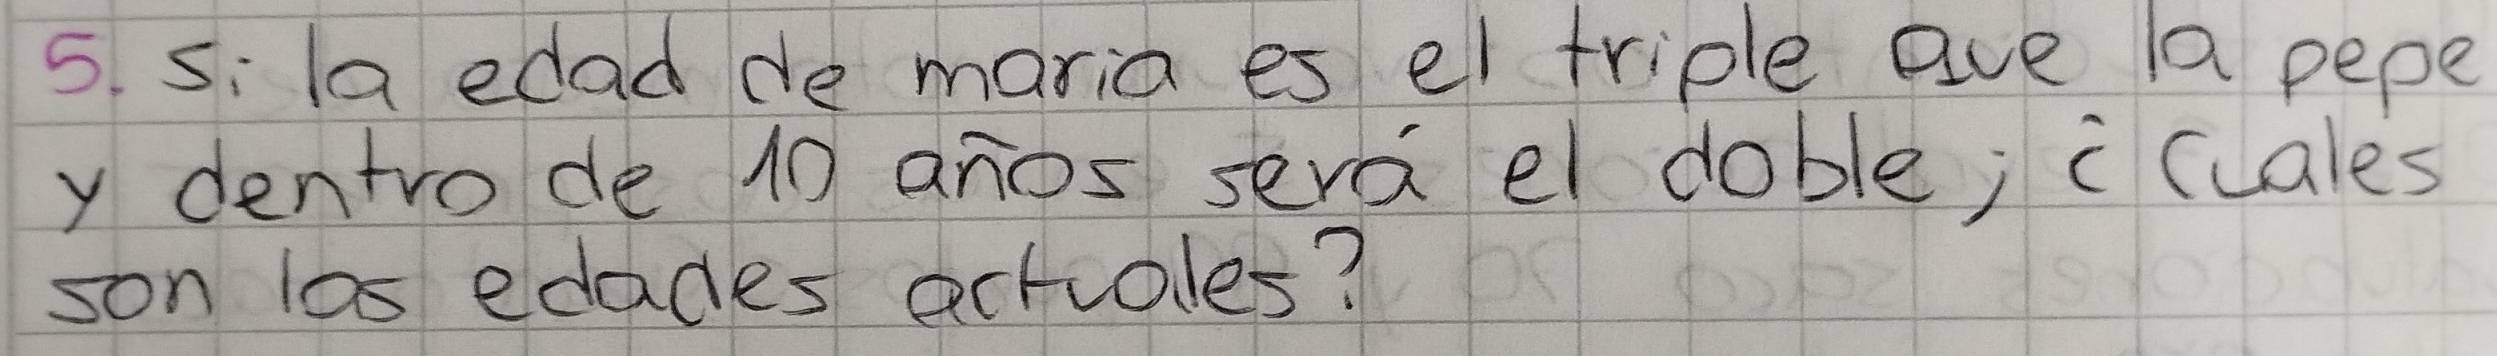 5. Si la edad de maria es el triple que la pepe
y dentro de 10 años será el doble; ¿ Cuales
son las edades actuales?